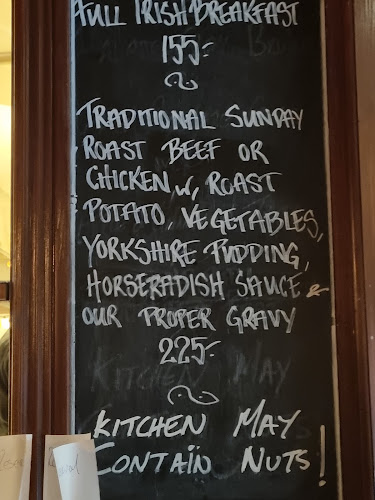 FULL IRISH BREAKFAST
155:-
TRADITIONAL SUNDAY
ROAST BEEF OR
CHICKEN w, ROAST
POTATO, VEGETABLES,
YORKSHIRE PUDDING,
HORSERADISH SAUCE &
OUR PROPER GRAVY
225:-
KITCHEN MAY
CONTAIN NUTS!